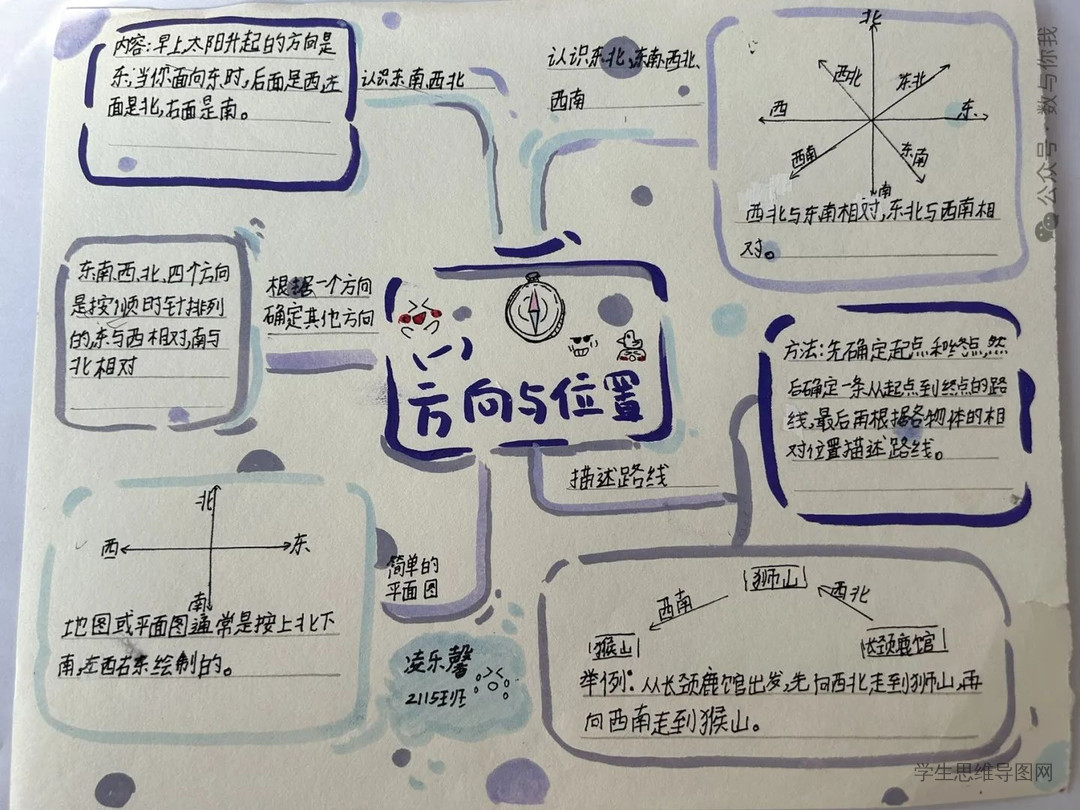 内容:早上太阳升起的方向是
东,当你面向东时,后面是西,左
面是北,右面是南。
认识东、南、西、北
认识东北、东南、西北、
西南
北
西北
东北
西
东
西南
东南
南
西北与东南相对,东北与西南相
对。
公众号·数与你我
东、南、西、北、四个方向
是按顺时针排列
的,东与西相对,南与
北相对
根据一个方向
确定其他方向
(一)
方向与位置
方法:先确定起点和终点,然
后确定一条从起点到终点的路
线,最后再根据各物体的相
对位置描述路线。
描述路线
北
西
东
南
地图或平面图通常是按上北下
南,左西右东绘制的。
简单的
平面图
凌乐馨
2115班
狮山
西南
西北
猴山
长颈鹿馆
举例:从长颈鹿馆出发,先向西北走到狮山,再
向西南走到猴山。
学生思维导图网